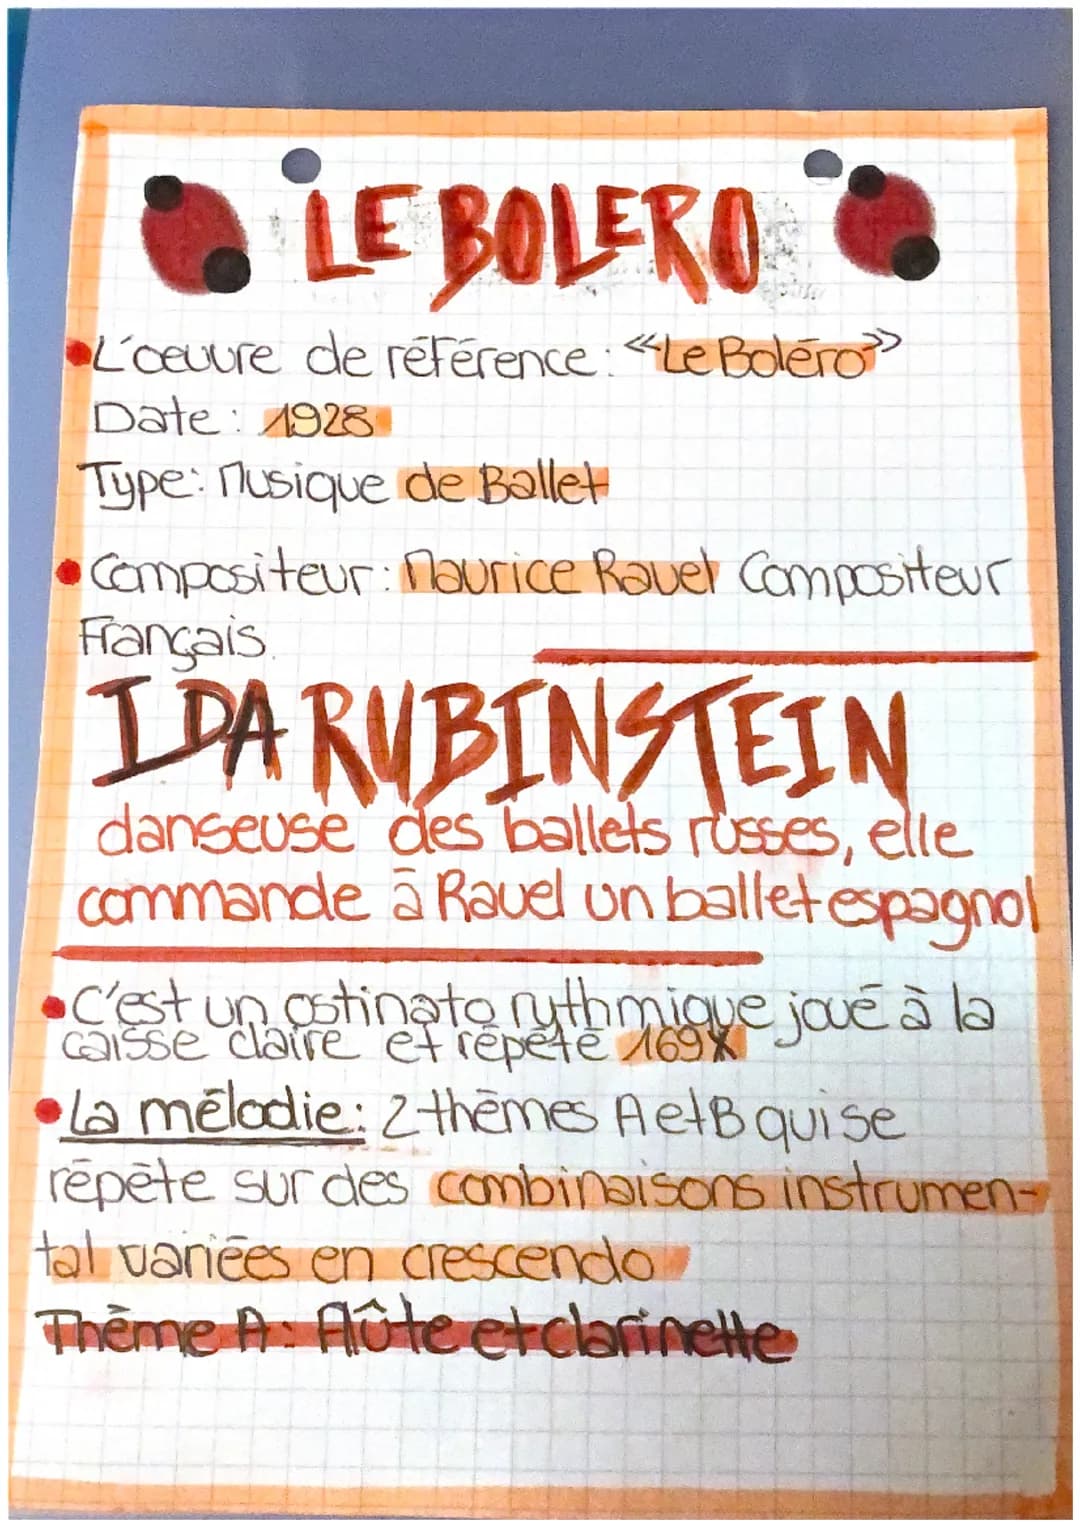 LE BOLERO
L'œuvre de référence: «Le Boléro»
Date: 1928
Type: Musique de Ballet
Compositeur: Maurice Ravel Compositeur
Français.
IDA RUBINSTEIN
danseuse des ballets russes, elle
commande à Ravel un ballet espagnol
C'est un ostinato rythmique joué à la
caisse claire et répété 169X
La mélodie: 2 thèmes A et B qui se
répète sur des combinaisons instrumen-
tal variées en crescendo
Thème A: Flûte et clarinette